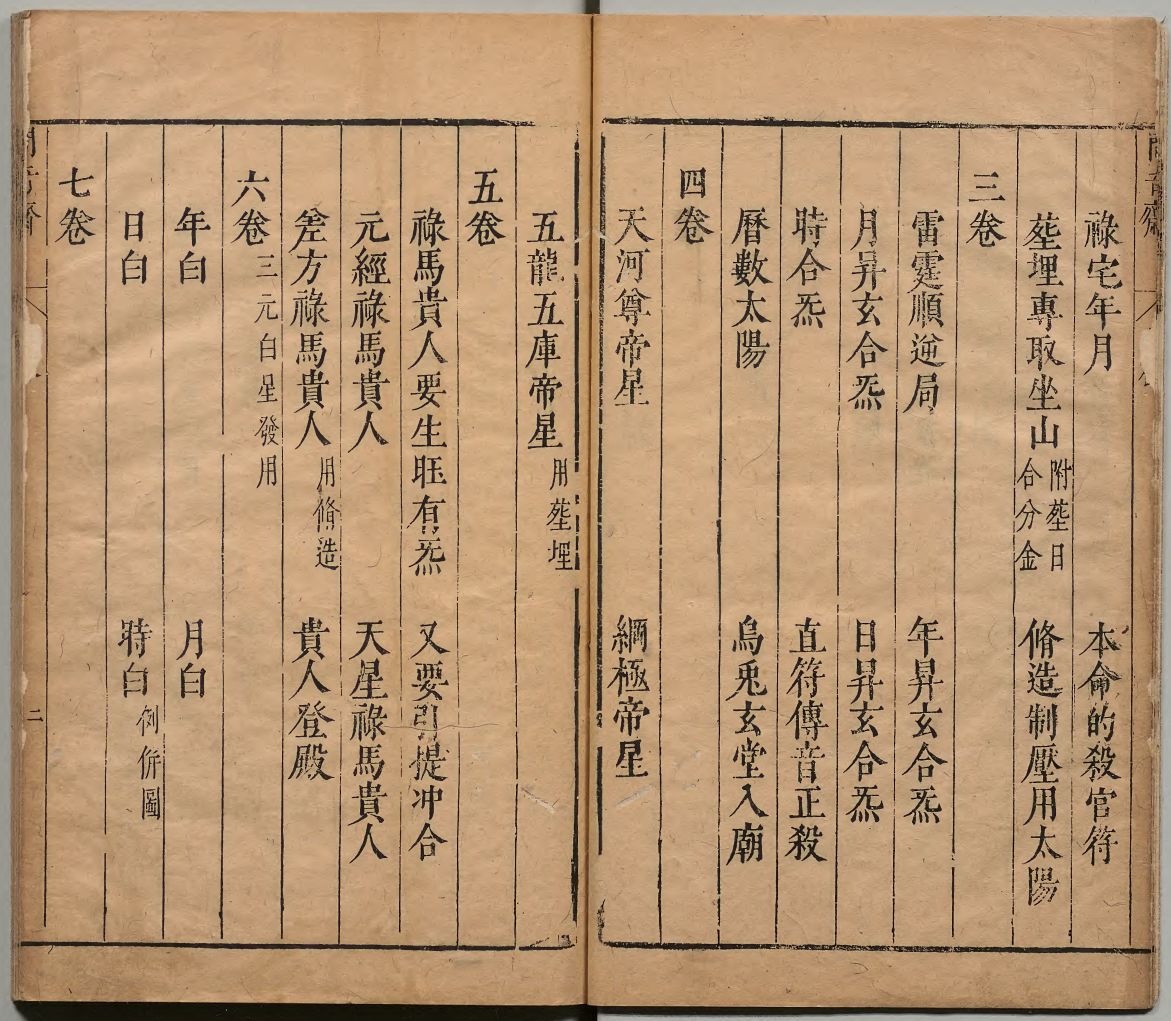 祿宅年月　本命的殺官符
葬埋專取坐山 附葬日合分金　脩造制壓用太陽
三卷
雷霆順逆局　年昇玄合炁
月昇玄合炁　日昇玄合炁
時合炁　直符傳音正殺
曆數太陽　烏兎玄堂入廟
四卷
天河尊帝星　綱極帝星
五龍五庫帝星 用葬埋
五卷
祿馬貴人要生旺有炁　又要引提冲合
元經祿馬貴人　天星祿馬貴人
差方祿馬貴人 用脩造　貴人登殿
六卷 三元白星發用
年白　月白
日白　時白 例併圖
七卷
二